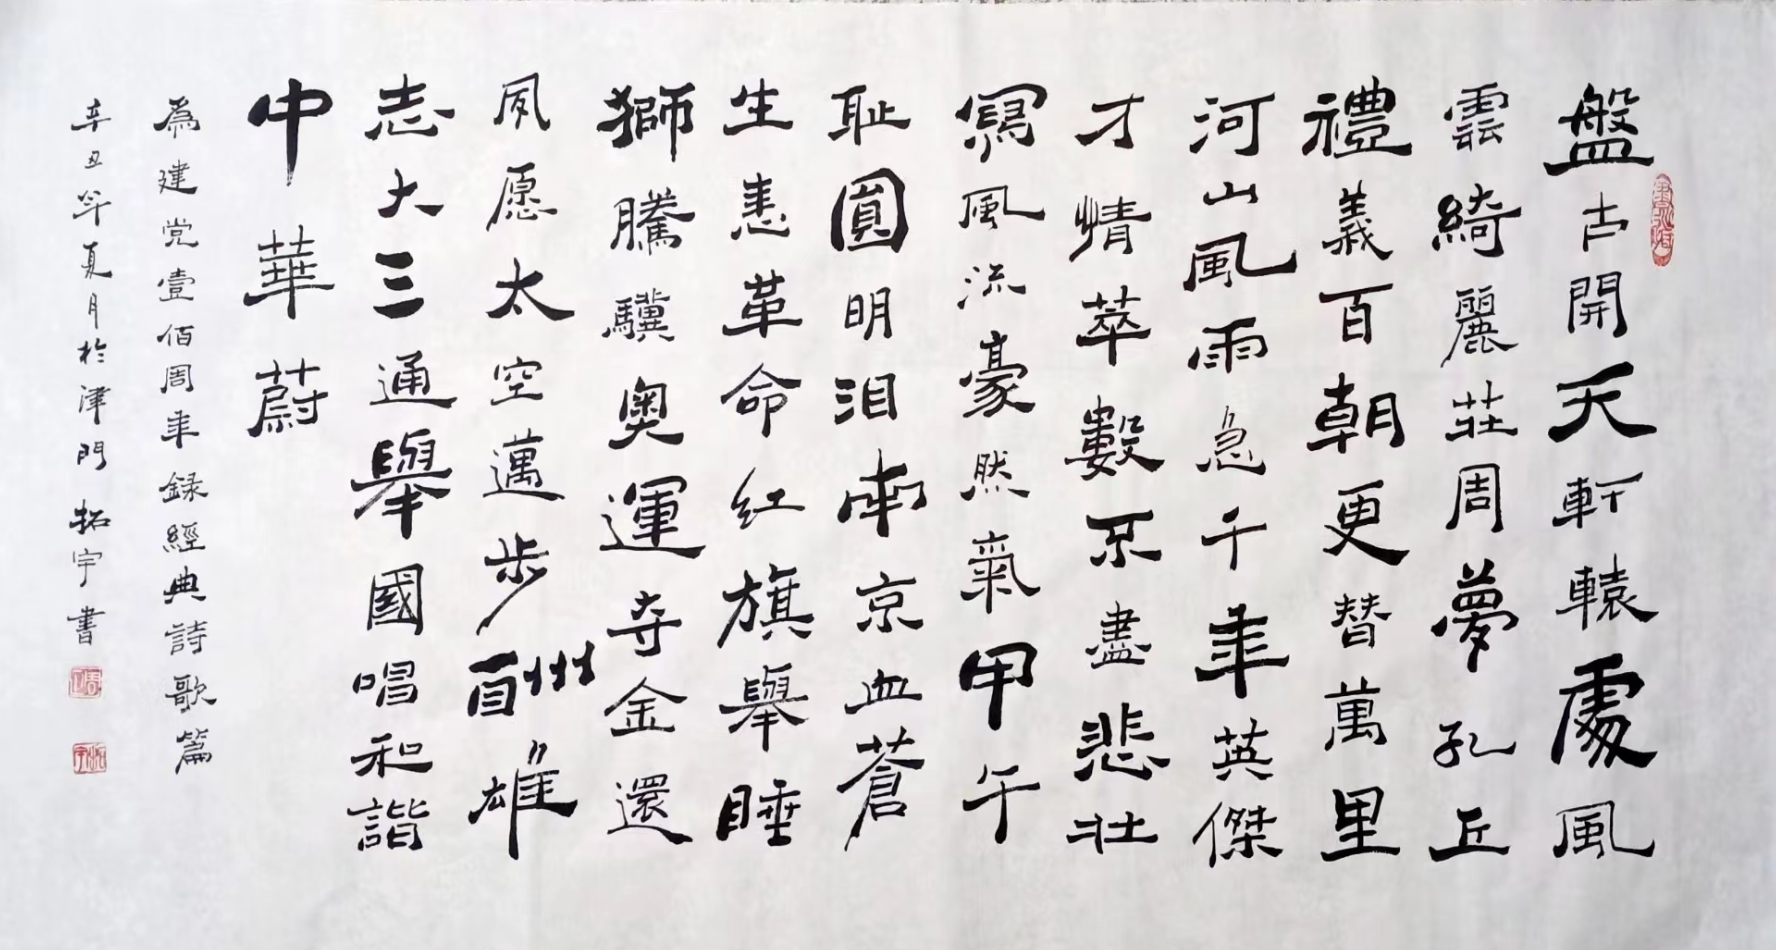 盤古開天軒轅處風
雲綺麗莊周夢孔丘
禮義百朝更替萬里
河山風雨急千年英傑
才情萃數不盡悲壯
寫風流豪然氣甲午
恥圓明泪南京血蒼
生恚革命红旗舉睡
獅騰驥奥運夺金還
夙愿太空邁步酬雄
志大三通舉國唱和諧
中華蔚
為建党壹佰周年録經典詩歌篇
辛丑年夏月於津門拓宇書